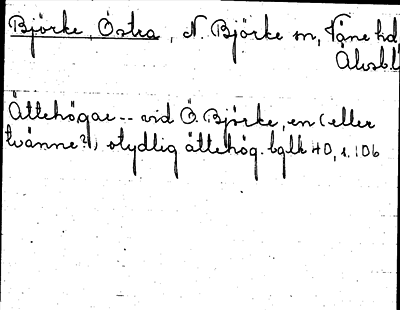 Björke, Östra, N. Björke sn, Väne hd
Älvsbl
Ättehögar -- vid Ö. Björke, en (eller
tvänne?) otydlig ättehög. bglh 40, s. 106